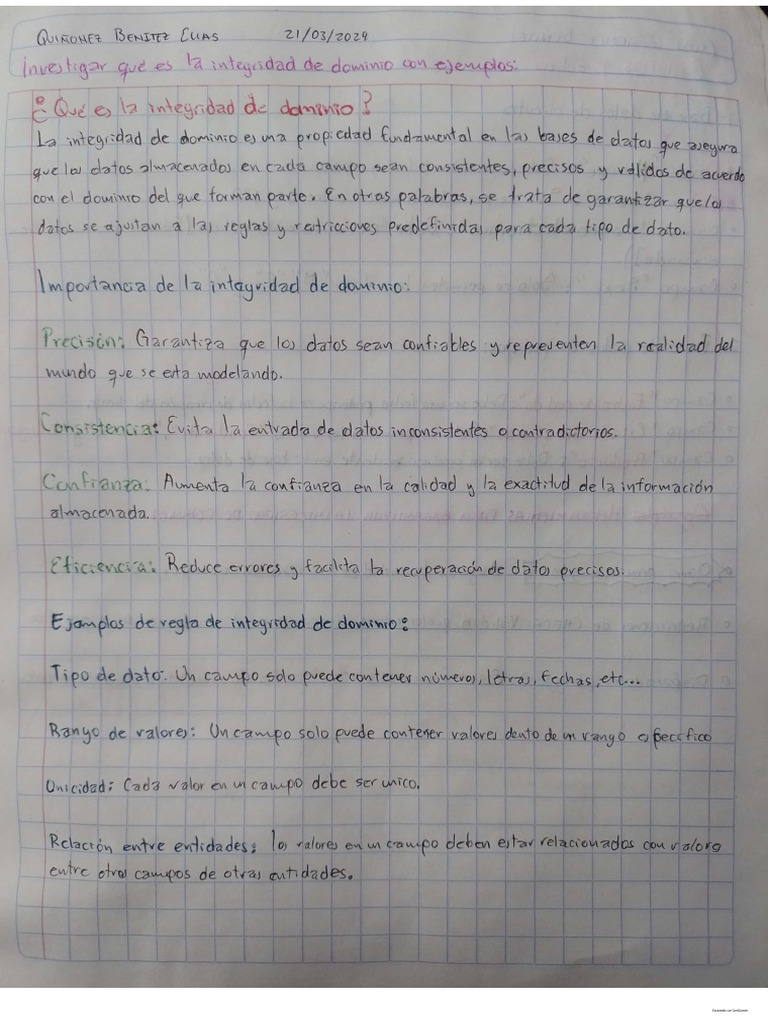 QUIÑONEZ BENITEZ ELIAS 21/03/2024
Investigar que es la integridad de dominio con ejemplos:
¿Qué es la integridad de dominio?
La integridad de dominio es una propiedad fundamental en las bases de datos que asegura
que los datos almacenados en cada campo sean consistentes, precisos y válidos de acuerdo
con el dominio del que forman parte. En otras palabras, se trata de garantizar que los
datos se ajustan a las reglas y restricciones predefinidas para cada tipo de dato.
Importancia de la integridad de dominio:
Precisión: Garantiza que los datos sean confiables y representen la realidad del
mundo que se esta modelando.
Consistencia: Evita la entrada de datos inconsistentes o contradictorios.
Confianza: Aumenta la confianza en la calidad y la exactitud de la información
almacenada.
Eficiencia: Reduce errores y facilita la recuperación de datos precisos.
Ejemplos de regla de integridad de dominio:
Tipo de dato: Un campo solo puede contener números, letras, fechas, etc...
Rango de valores: Un campo solo puede contener valores dento de un rango especifico
Unicidad: Cada valor en un campo debe ser unico.
Relación entre entidades: los valores en un campo deben estar relacionados con valores
entre otros campos de otras entidades.
Escaneado con CamScanner